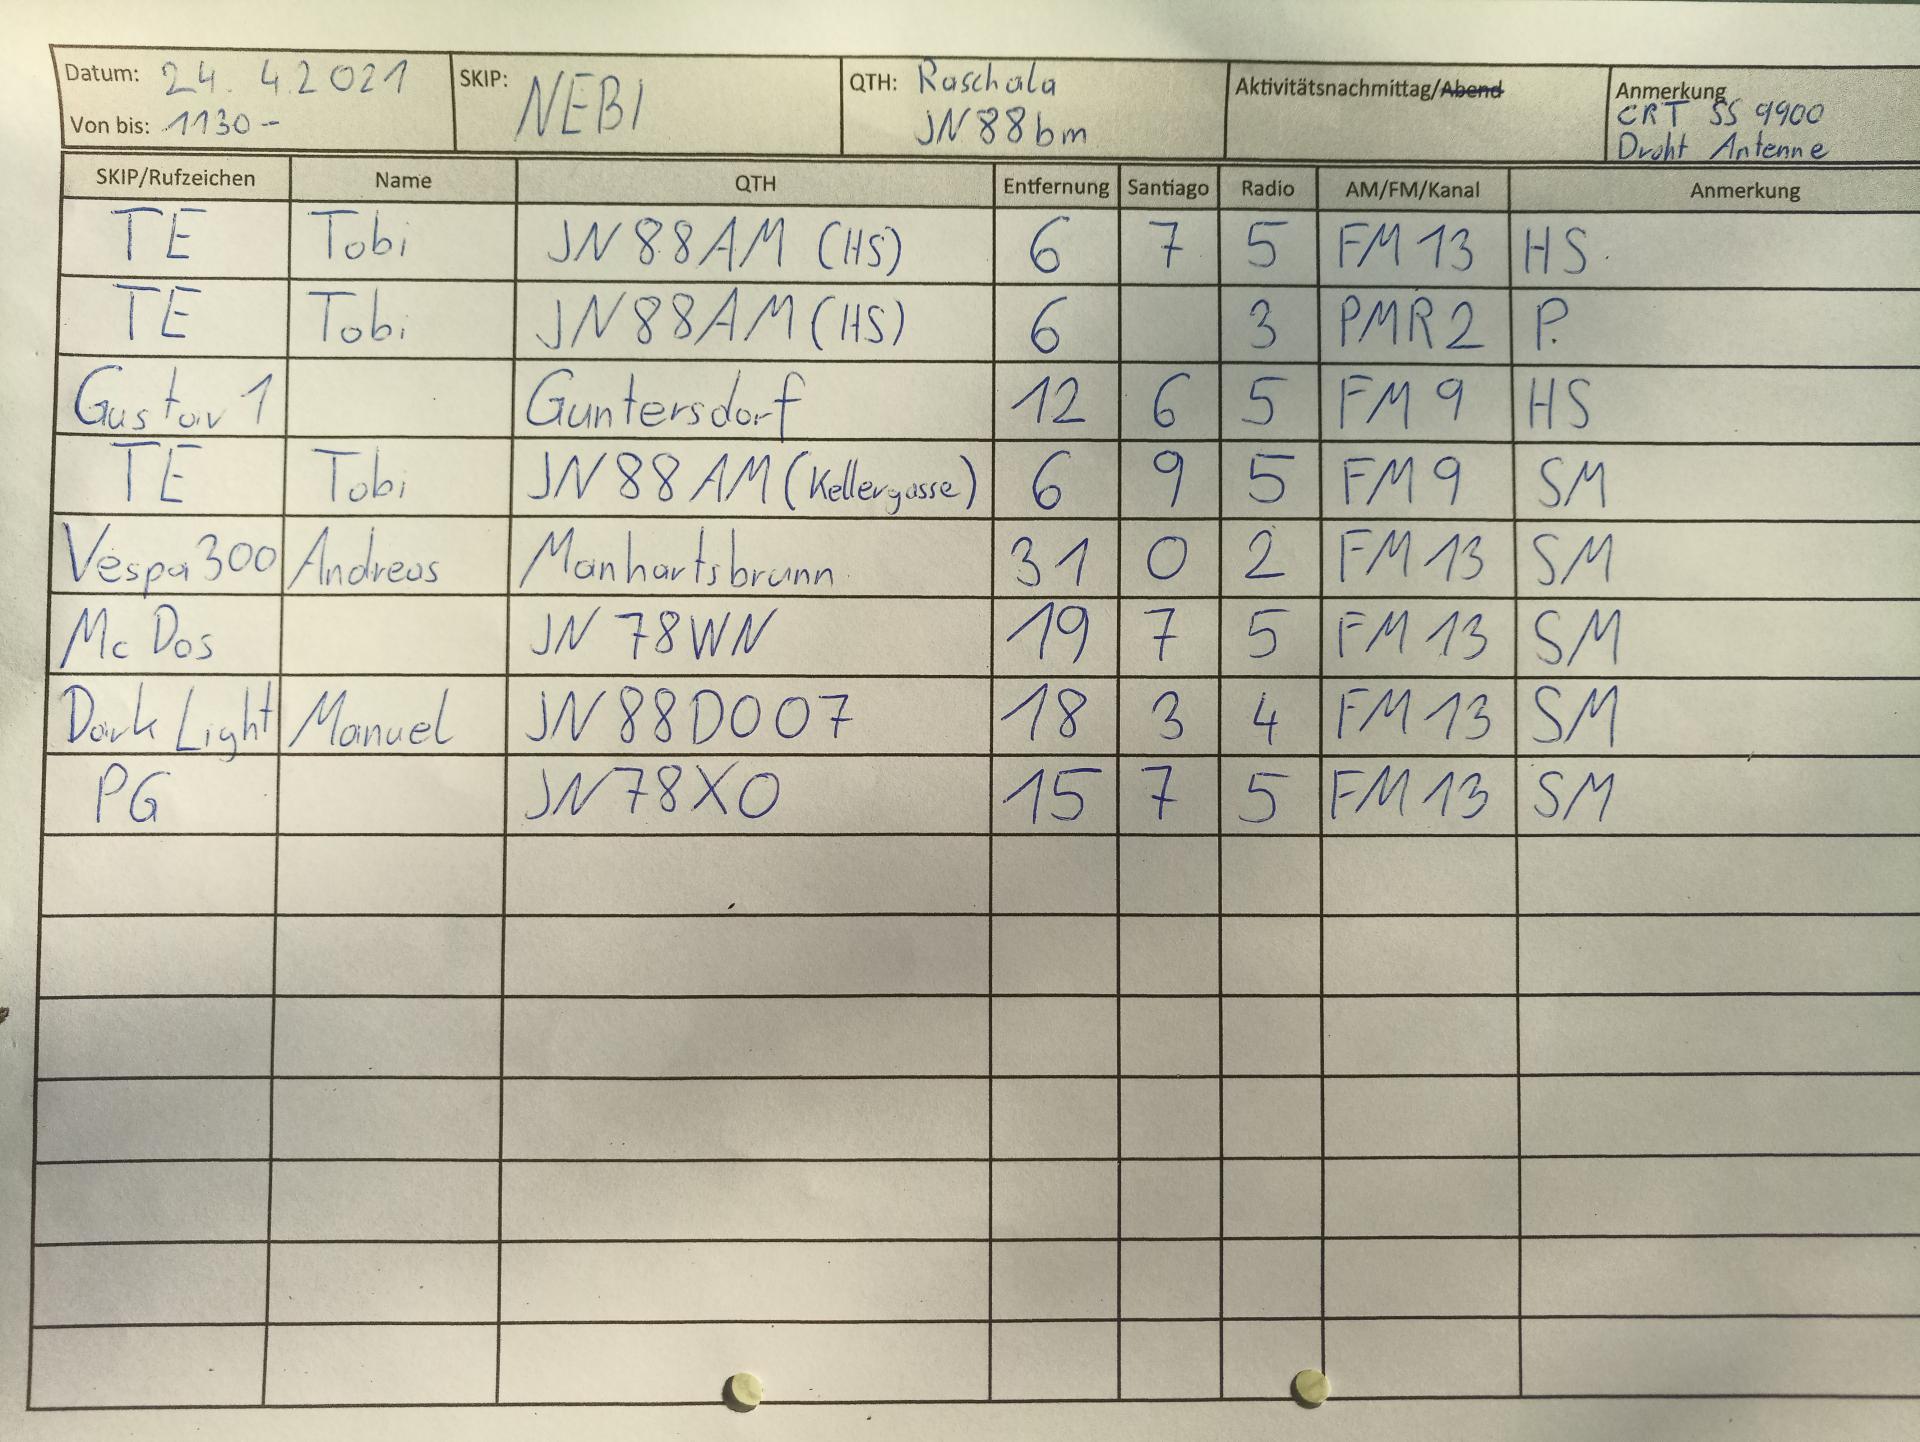 Datum: 24. 4.2021 SKIP: NEBI QTH: Raschala Aktivitätsnachmittag/Abend Anmerkung
Von bis: 1130 - JN88bm CRT SS 9900
Draht Antenne
SKIP/Rufzeichen Name QTH Entfernung Santiago Radio AM/FM/Kanal Anmerkung
TE Tobi JN88AM (HS) 6 7 5 FM 13 HS
TE Tobi JN88AM (HS) 6 3 PMR 2 P.
Gustav 1 Guntersdorf 12 6 5 FM 9 HS
TE Tobi JN88AM (Kellergasse) 6 9 5 FM 9 SM
Vespa 300 Andreas Manhartsbrunn 31 0 2 FM 13 SM
Mc Dos JN78WN 19 7 5 FM 13 SM
Dark Light Manuel JN88DO07 18 3 4 FM 13 SM
PG JN78XO 15 7 5 FM 13 SM